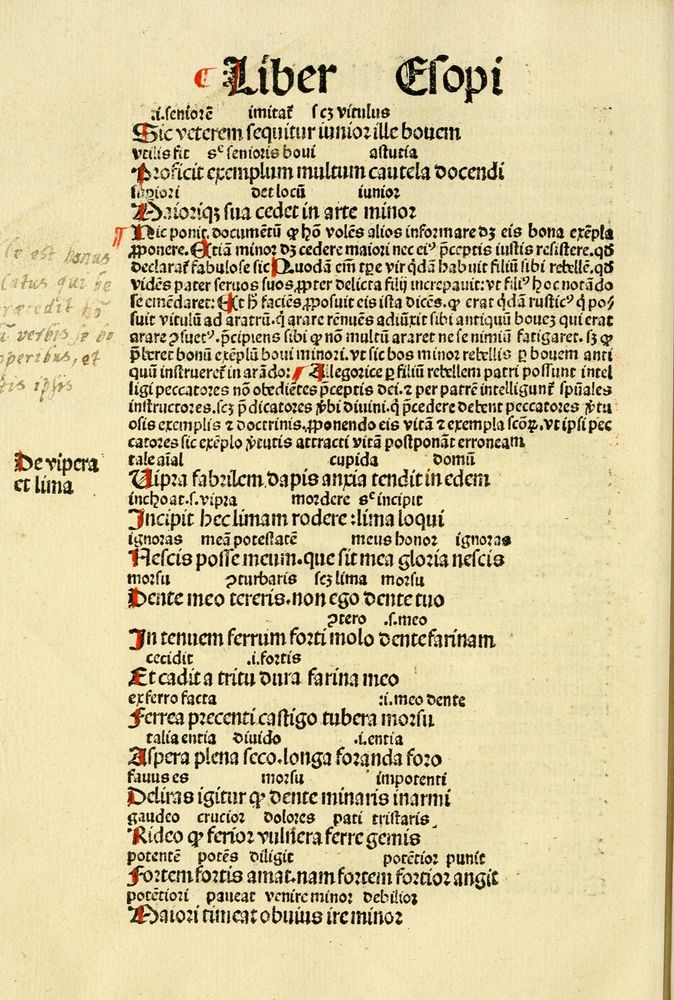 ¶ Liber Esopi
.i. seniorē imitat᷑ scꝫ vitulus
Sic veterem sequitur iunior ille bouem
vtilis fit sᶜ senioris boui astutia
Proficit exemplum multum cautela docendi
supiori det locū iunior
Maioriqꝫ sua cedet in arte minor
Hic ponit documētū ꝙ hō volēs alios informare dꝫ eis bona exēpla
ꝓponere. Etiā minor dꝫ cedere maiori nec eiꝰ p̄ceptis iustis resistere. qd̄
declarat᷑ fabulose sic Quodam em̄ tꝑe vir qͥdā habuit filiū sibi rebellē. qd̄
vidēs pater seruos suos ꝓpter delicta filij increpauit: vt filiꝰ hoc notādo
se emēdaret: Et hͦ faciēs ꝓposuit eis ista dicēs. ꝙ erat qͥdā rusticꝰ q̇ po⸗
suit vitulū ad aratrū. q̇ arare rēnuēs adiūxit sibi antiquū bouez qui erat
arare ꝯsuetꝰ. p̄cipiens sibi ꝙ nō multū araret ne se nimiū fatigaret. sꝫ ꝙ
p̄beret bonū exēplū boui minori. vt sic bos minor rebellis ꝑ bouem anti
quū instrueret᷑ in arādo: ¶ Allegorice ꝑ filiū rebellem patri possunt intel
ligi peccatores nō obediētes p̄ceptis dei. ⁊ per patrē intelligunt᷑ spūales
instructores. scꝫ p̄dicatores ꝟbi diuini. q̇ p̄cedere debent peccatores ꝟtu
osis exemplis ⁊ doctrinis. ꝓponendo eis vitā ⁊ exempla scōꝝ. vt ipsi pec
catores sic exēplo ꝟtutis attracti vitā postponāt erroneam
De vipera
et lima
tale aīal cupida domū
Vipra fabrilem dapis anxia tendit in edem
inchoat .s. vipra mordere sᶜ incipit
Incipit hec limam rodere: lima loqui
ignoras meā potestatē meus honor ignoras
Nescis posse meum. que sit mea gloria nescis
morsu ꝯturbaris scꝫ lima morsu
Dente meo tereris. non ego dente tuo
ꝯtero .s. meo
In tenuem ferrum forti molo dente farinam
cecidit .i. fortis
Et cadit a tritu dura farina meo
ex ferro facta .i. meo dente
Ferrea precenti castigo tubera morsu
talia entia diuido .i. entia
Aspera plena seco. longa foranda foro
fauus es morsu impotenti
Deliras igitur ꝙ dente minaris inarmi
gaudeo crucior dolores pati tristaris
Rideo ꝙ ferior vulnera ferre gemis
potentē potēs diligit potētior punit
Fortem fortis amat. nam fortem fortior angit
potētiori paueat venire minor debilior
Maiori timeat obuius ire minor